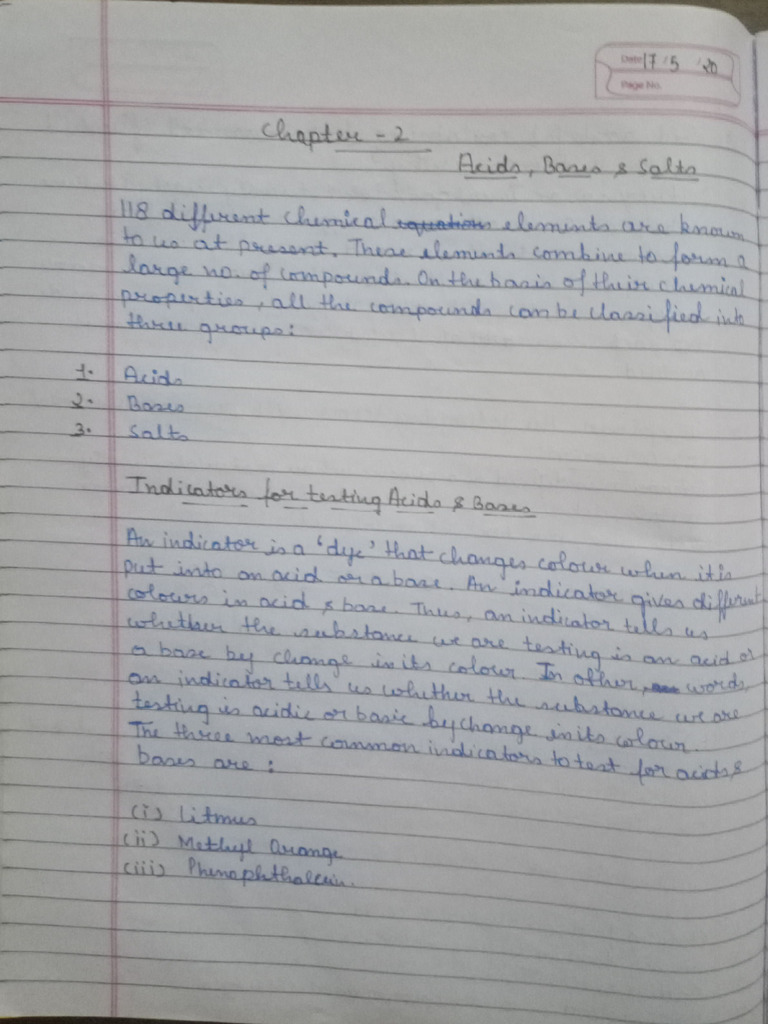 Date 17/5/20
Page No.
Chapter - 2
Acids, Bases & Salts
118 different chemical equations elements are known
to us at present. These elements combine to form a
large no. of compounds. On the basis of their chemical
properties, all the compounds can be classified into
three groups:
1. Acids
2. Bases
3. Salts
Indicators for testing Acids & Bases
An indicator is a 'dye' that changes colour when it is
put into an acid or a base. An indicator gives different
colours in acid & base. Thus, an indicator tells us
whether the substance we are testing is an acid or
a base by change in its colour. In other, words,
an indicator tells us whether the substance we are
testing is acidic or basic by change in its colour.
The three most common indicators to test for acids &
bases are :
(i) Litmus
(ii) Methyl Orange
(iii) Phenophthalein.